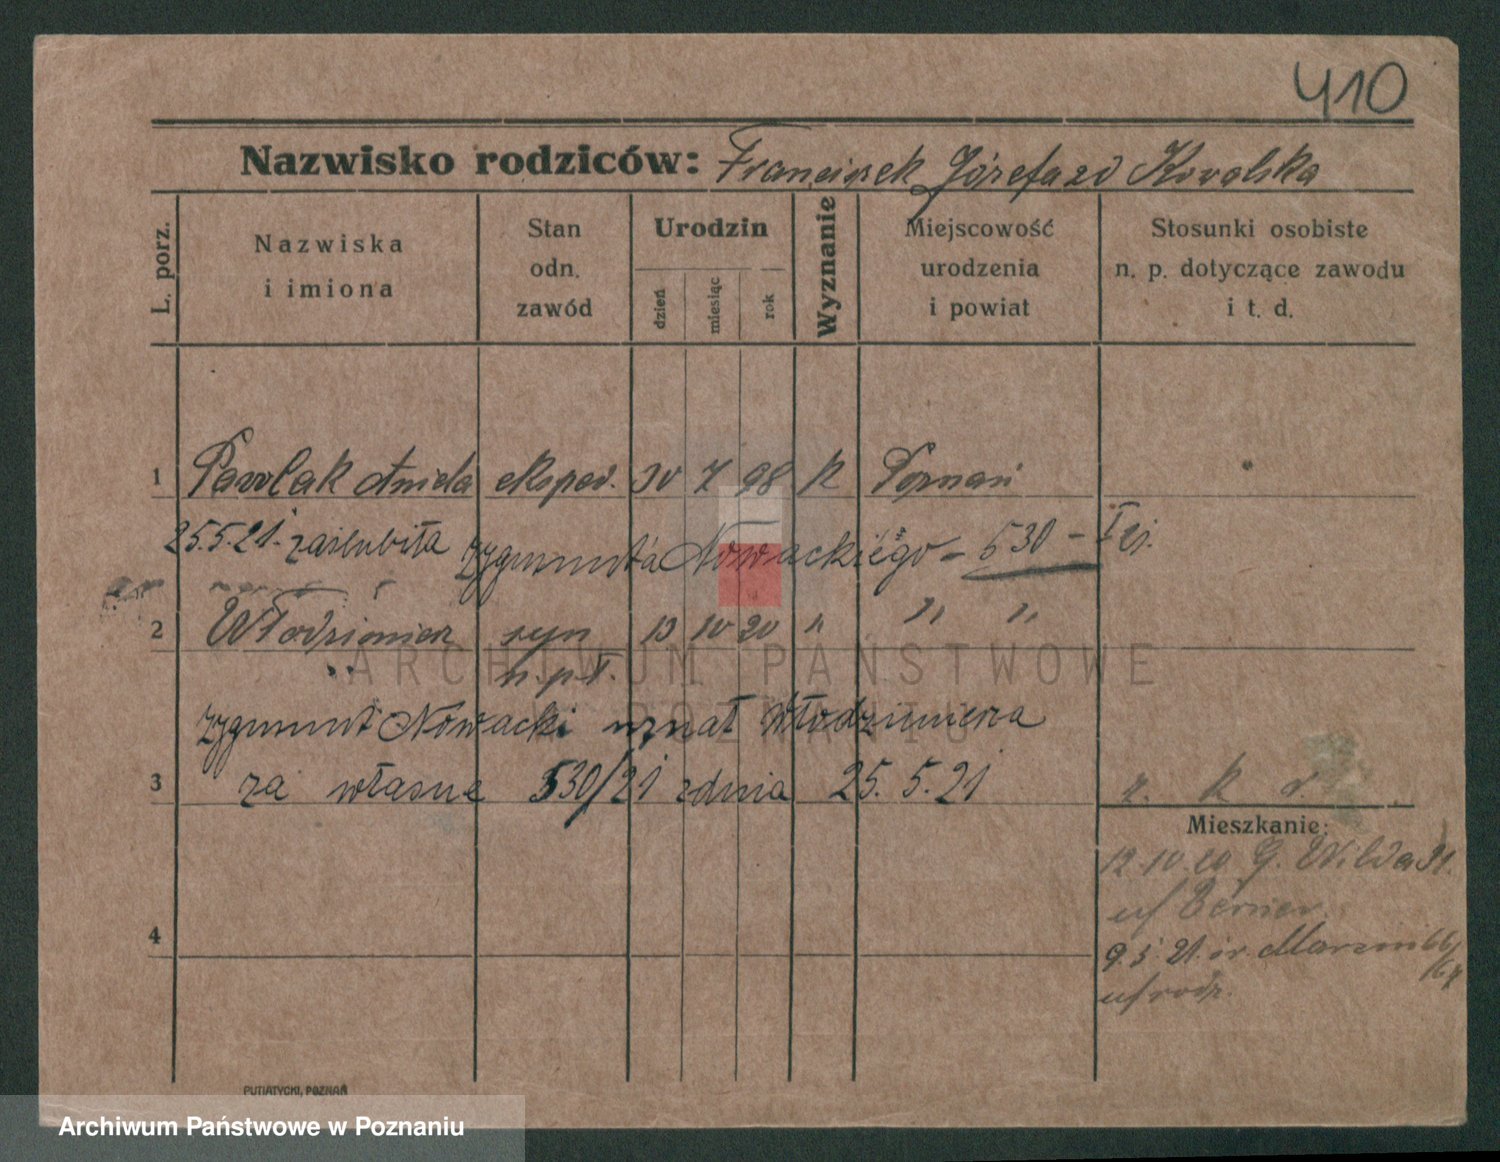 410
Nazwisko rodziców: Franciszek Józefa zd Kowalska
L. porz.
Nazwiska i imiona
Stan odn. zawód
Urodzin
dzień
miesiąc
rok
Wyznanie
Miejscowość urodzenia i powiat
Stosunki osobiste n. p. dotyczące zawodu i t. d.
1 Pawlak Aniela eksped. 30 7 98 k Poznań
25.5.21. zaślubiła Zygmunta Nowackiego – 530 –
2 Włodzimierz syn 13 10 20 " " "
n. p. t.
Zygmunt Nowacki uznał Włodzimierza
3 za własne 530/21 z dnia 25. 5. 21
k
Mieszkanie:
12.10.20 G. Wilda
u/
4
9.5.21.
u/rodz.
PUTIATYCKI, POZNAŃ
ARCHIWUM PAŃSTWOWE
W POZNANIU
Archiwum Państwowe w Poznaniu